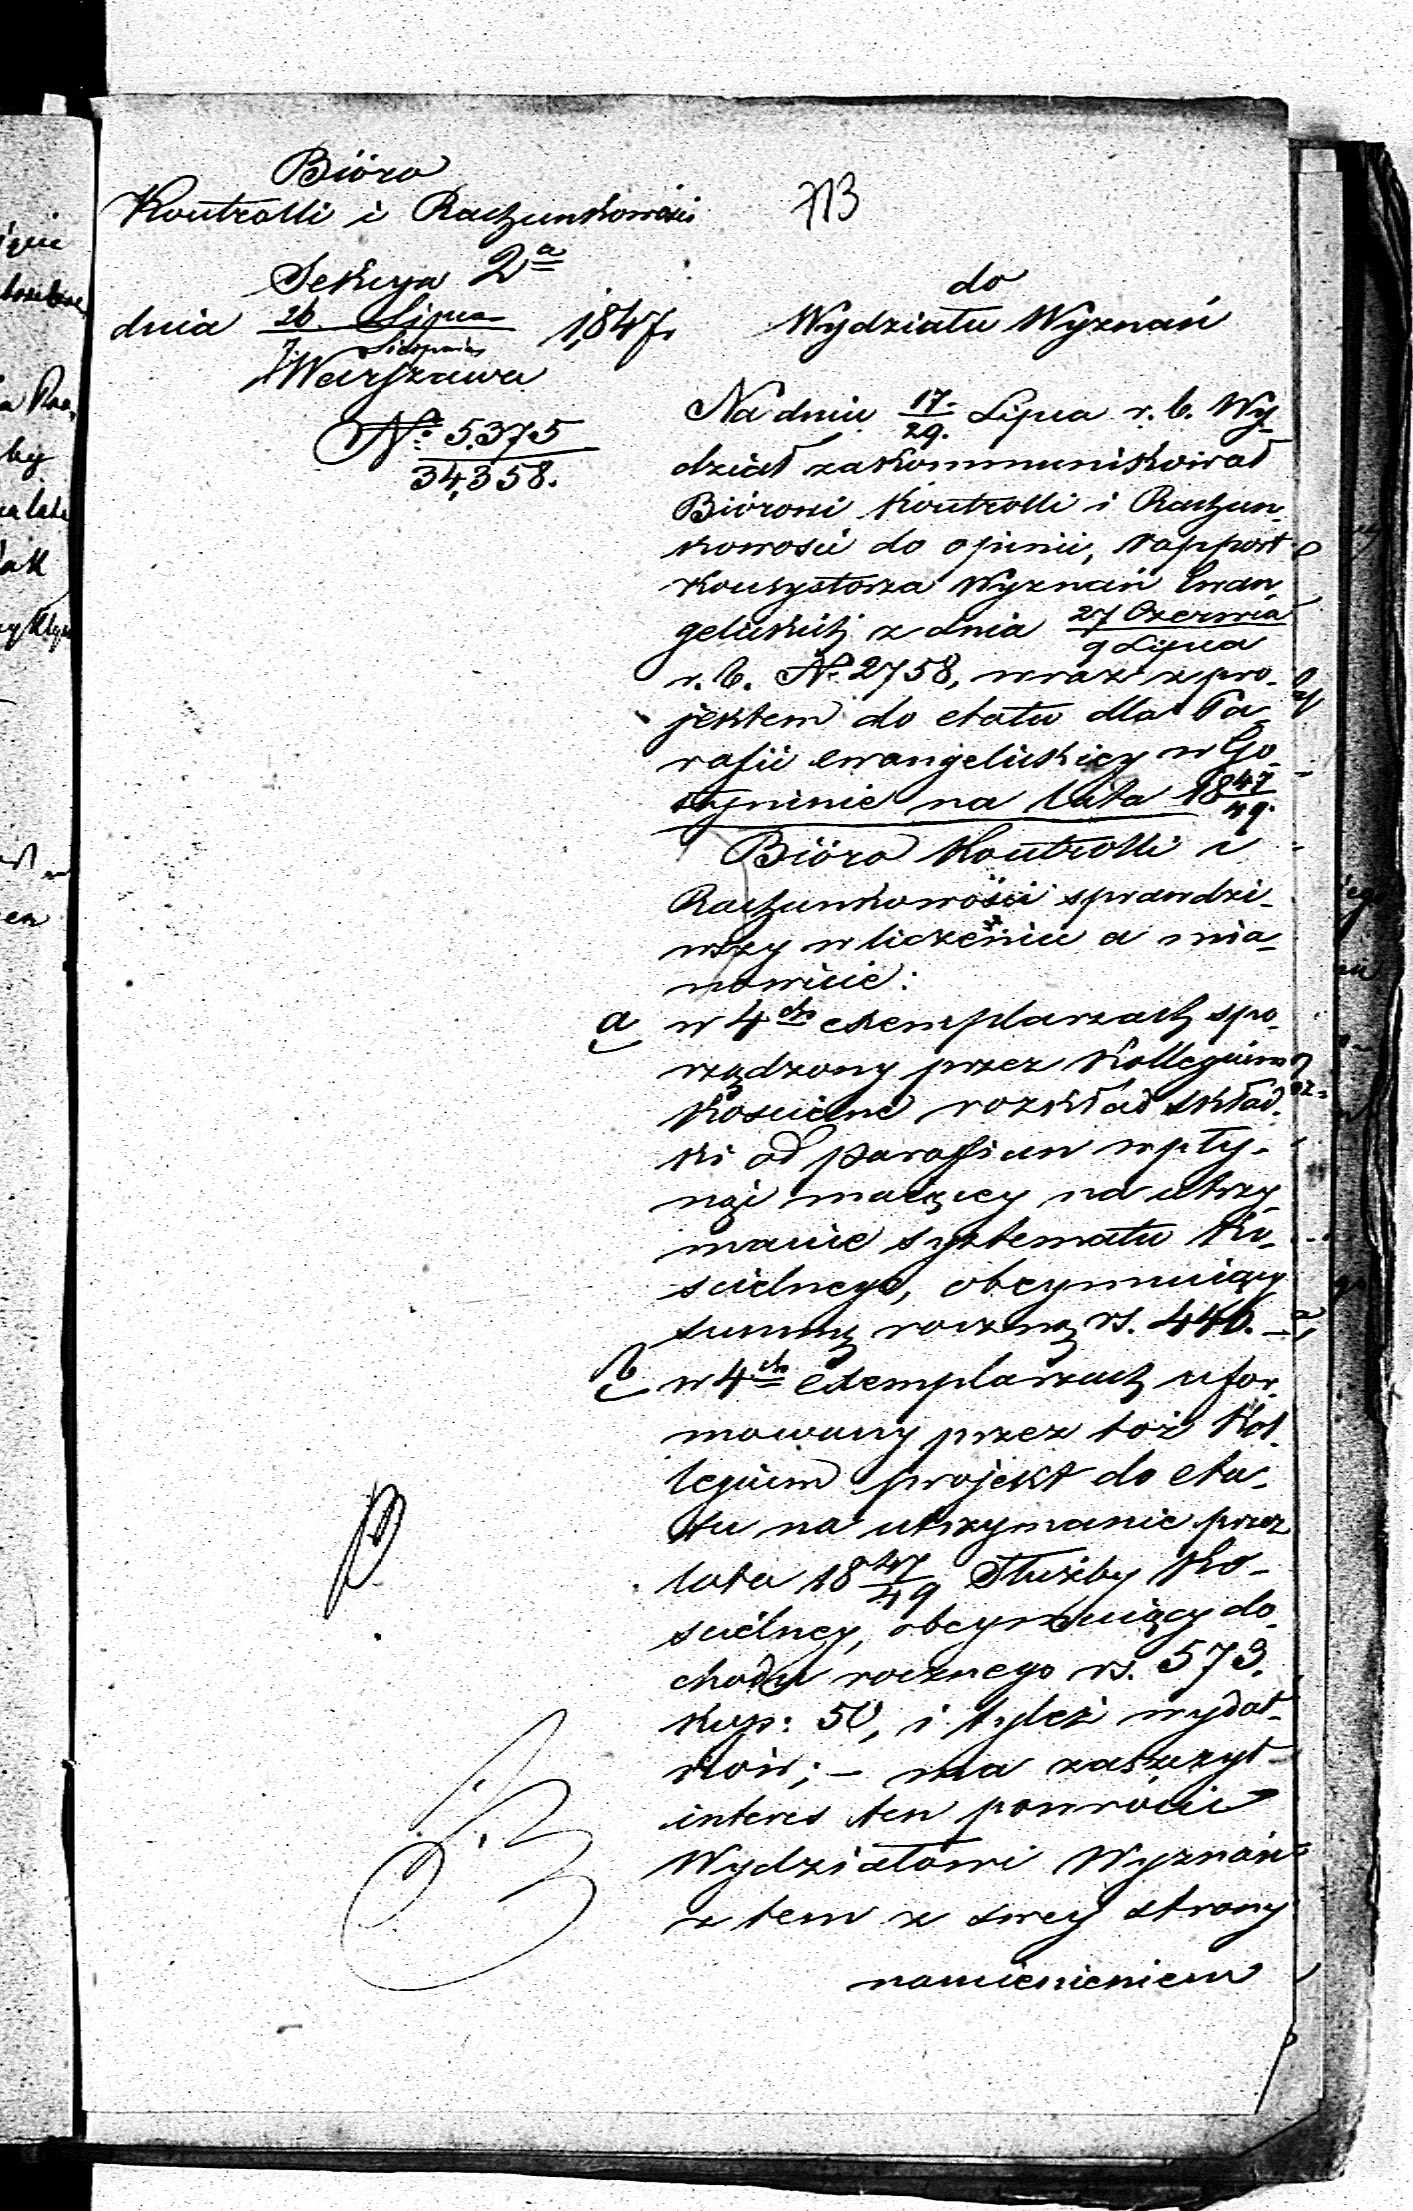 Bióro
Kontrolli i Rachunkowości
Sekcya 2a
dnia 26 Lipca / 7 Sierpnia 1847
Warszawa
No 5375
34,358.
713
do
Wydziału Wyznań
Na dniu 17/29. Lipca r. b. Wy-
dział zakommunikował
Biórowi Kontrolli i Rachun-
kowości do opinii, rapport
Konsystorza Wyznań Ewan-
gelickich z dnia 27 Czerwca / 9 Lipca
r. b. No 2758, wraz z pro-
jektem do etatu dla Pa-
rafii ewangelickiey w Go-
styninie na lata 1847/49.
Bióro Kontrolli i
Rachunkowości sprawdzi-
wszy w liczeniu a mia-
nowicie:
a w 4ch exemplarzach spo-
rządzony przez Kollegium
Kościelne rozkład skład-
ki od parafian wpły-
nąć maiącey na utrzy-
manie systematu Ko-
ścielnego, obeymuiący
summę roczną rs. 440. -
b w 4ch exemplarzach ufor-
mowany przez toż Kol-
legium projekt do eta-
tu na utrzymanie przez
lata 1847/49 Służby Ko-
ścielney, obeymuiący do-
chodu rocznego rs. 573.
kop: 50, i tyleż wydat-
ków; - ma zaszczyt
interes ten powrócić
Wydziałowi Wyznań
z tem z swey strony
namienieniem